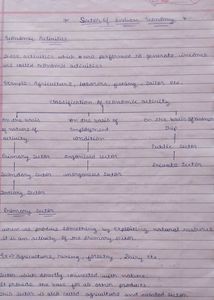 * Sector of Indian Economy *
Economic Activities
Those activities which are performed to generate incomes
are called economic activities.
Example: Agriculture, labourers, farming, tailor etc.
Classification of economic activity
On the basis On the basis of On the basis of owner
of nature of Employment Ship
activity condition Public Sector
Primary Sector organised sector Private Sector
Secondary Sector unorganised sector
Tertiary Sector
Primary Sector
when we produce something by exploiting natural materials
it is an activity of the primary sector.
Ex:- agriculture, mining, forestry, Dairy etc.
Sector which directly connected with nature.
It provide the base for all other products
This sector is also called agriculture and related sector.